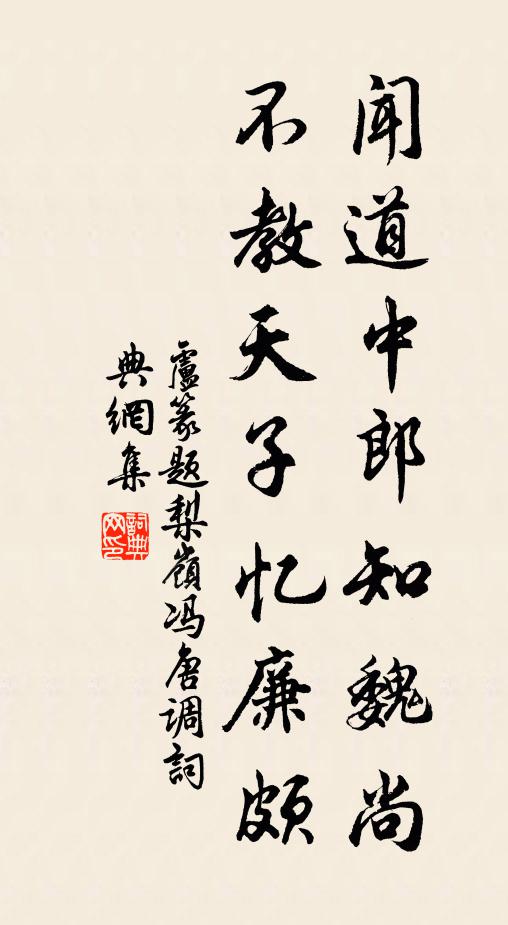 闻道中郎知魏尚
不教天子忆廉颇
盧篆题梨嶺冯唐调詞
典網集
詞典網印